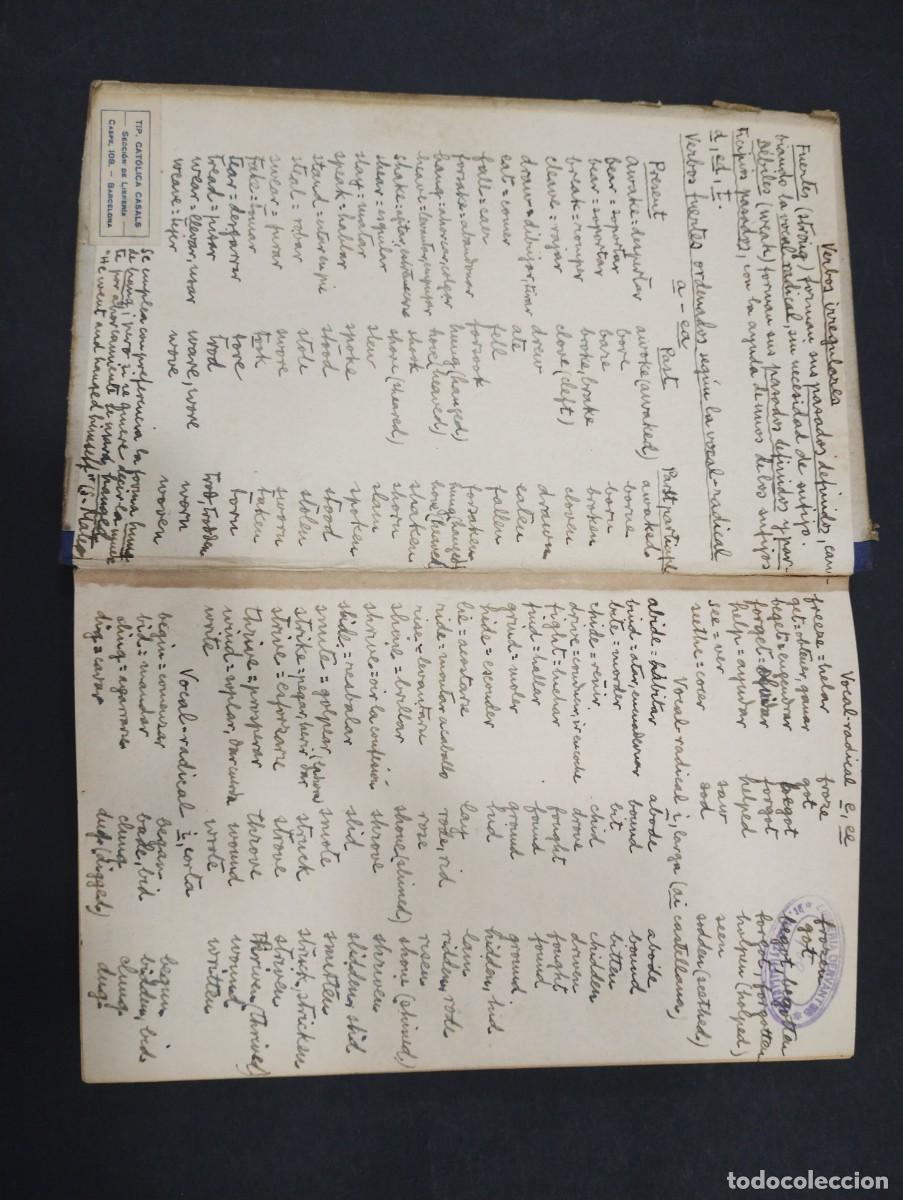 Verbos irregulares
Fuertes (strong) forman sus pasados definidos, cam-
biando la vocal radical, sin necesidad de sufijo.
Débiles (weak) forman sus pasados definidos y par-
ticipios pasados, con la ayuda de unos de los sufijos
d, ed, t.
Verbos fuertes ordenados según la vocal-radical
a - ea
Present Past Past participle
awake = despertar awoke (awaked) awaked
bear = soportar bore borne
bear = soportar bare born
break = romper broke, brake broken
cleave = rajar clove (cleft) cloven
draw = dibujar, tirar drew drawn
eat = comer ate eaten
fall = caer fell fallen
forsake = abandonar forsook forsaken
hang = ahorcar, colgar hung (hanged) hung (hanged)
heave = levantar, empujar hove (heaved) hove (heaved)
shake = agitar, estremecerse shook shaken
shear = esquilar shore (sheared) shorn
slay = matar slew slain
speak = hablar spoke spoken
stand = estar en pie stood stood
steal = robar stole stolen
swear = jurar swore sworn
take = tomar took taken
tear = desgarrar tore torn
tread = pisar trod trod, trodden
wear = llevar, usar wore worn
weave = tejer wove woven
Se emplea con preferencia la forma hung
de hang; pero si se quiere decir la muer-
te por ahorcamiento se usará hanged
"He went and hanged himself" (S. Mateo)
TIP. CATÓLICA CASALS
SECCIÓN DE LIBRERÍA
CASPE, 108. — BARCELONA
Vocal-radical e, ee
freeze = helar froze frozen
get = obtener, ganar got got
beget = engendrar begot begot, begotten
forget = olvidar forgot forgot, forgotten
help = ayudar helped holpen (helped)
see = ver saw seen
seethe = cocer sod sodden (seethed)
Vocal-radical i larga (ai castellana)
abide = habitar abode abode
bind = atar, encuadernar bound bound
bite = morder bit bitten
chide = reñir chid chidden
drive = conducir, ir en coche drove driven
fight = luchar fought fought
find = hallar found found
grind = moler ground ground
hide = esconder hid hidden, hid
lie = acostarse lay lain
ride = montar a caballo rode, rid ridden, rode
rise = levantarse rose risen
shine = brillar shone (shined) shone (shined)
shrive = oir la confesión shrove shriven
slide = resbalar slid slidden, slid
smite = golpear smote smitten
strike = pegar, herir, dar (la hora) struck struck, stricken
strive = esforzarse strove striven
thrive = prosperar throve thriven (thrived)
wind = soplar, dar cuerda wound wound
write wrote written
Vocal-radical i, corta
begin = comenzar began begun
bid = mandar bade, bid bidden, bid
cling = agarrarse clung clung
dig = cavar dug (digged) dug
todocoleccion